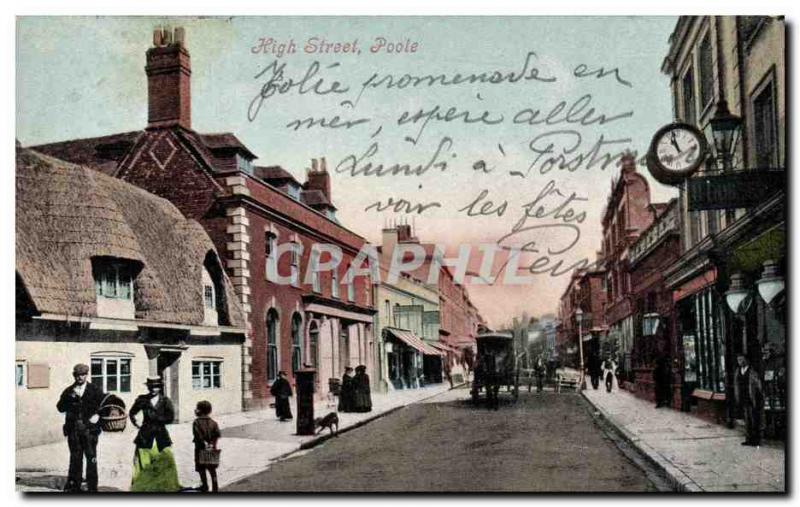 High Street, Poole
Jolie promenade en
mer, espère aller
Lundi à
voir les fêtes
CPAPHIL.COM